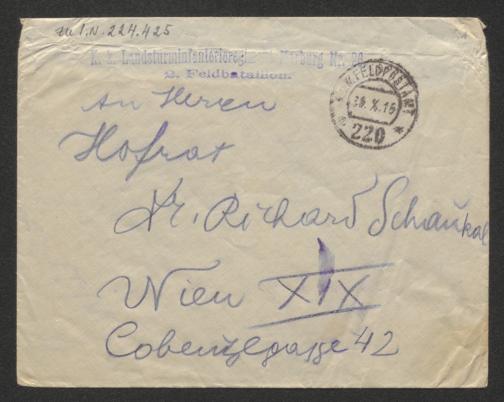 zu I.N. 224.425
K. k. Landsturminfanterieregiment Marburg Nr. 26
2. Feldbataillon.
K.u.K. FELDPOSTAMT
X. 16
220
An Herrn
Hofrat
Dr. Richard Schaukal
Wien XIX
Cobenzlgasse 42